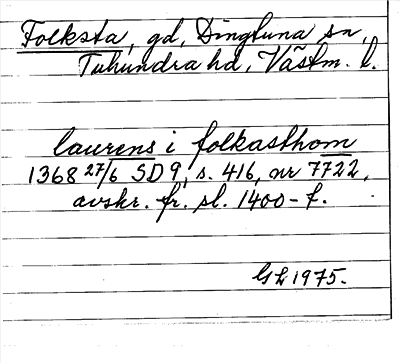 Folksta, gd, Dingtuna sn,
Tuhundra hd, Västm. l.
laurens i folkasthom
1368 27/6 SD 9, s. 416, nr 7722,
avskr. fr. sl. 1400-t.
GL 1975.